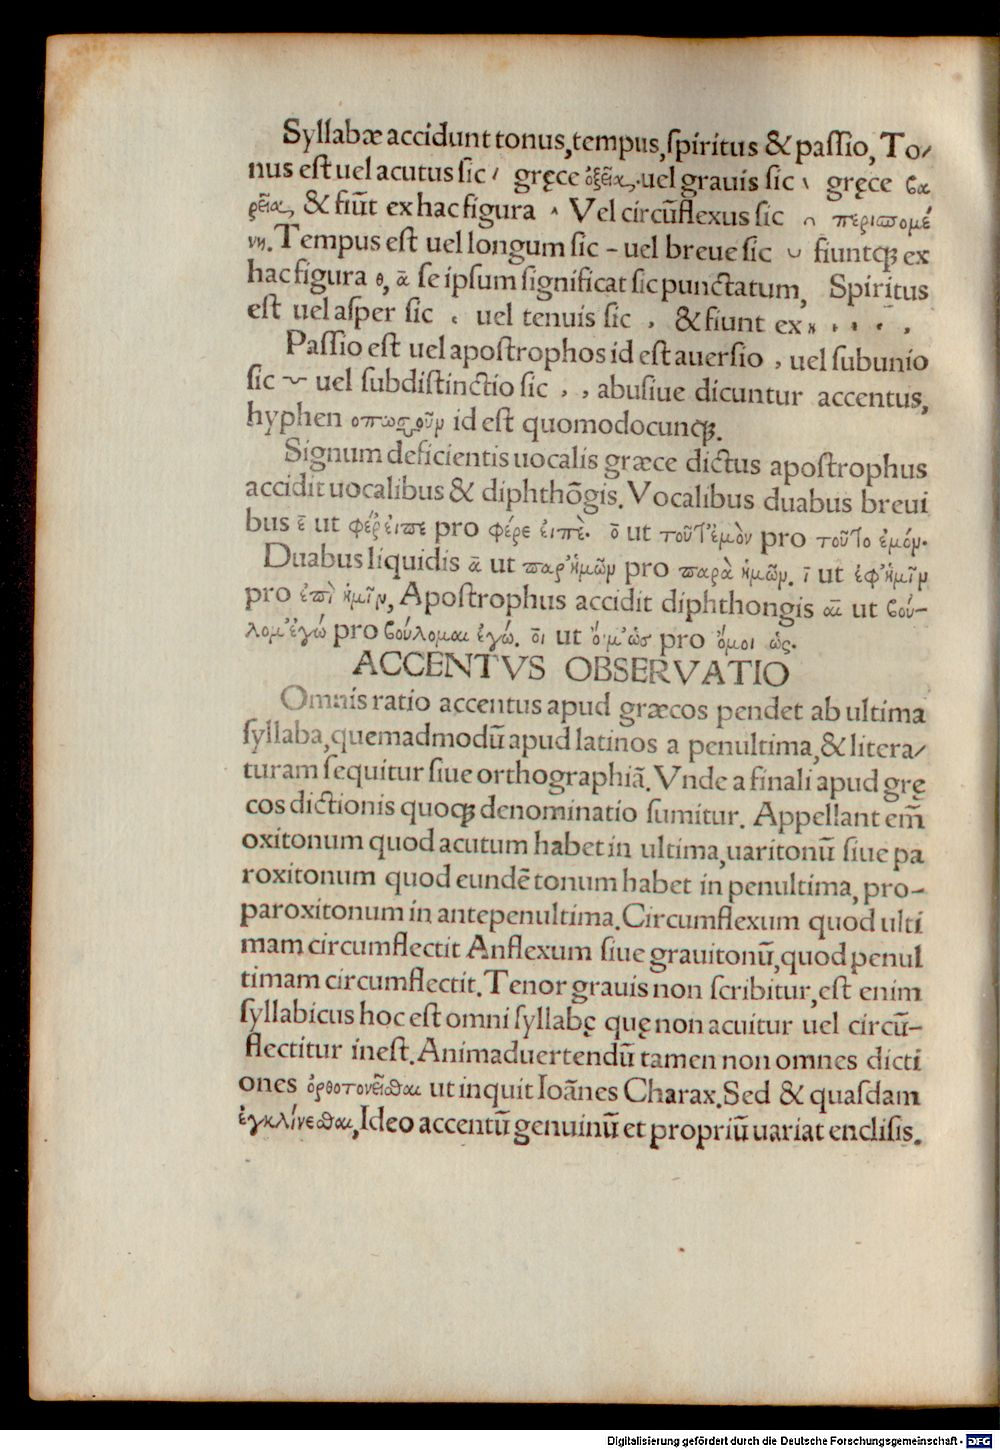 Syllabæ accidunt tonus, tempus, ſpiritus & paſſio, To/
nus eſt uel acutus ſic ´ gręce ὀξεῖα, uel grauis ſic ` gręce βα
ρεῖα, & fiūt ex hac figura ^ Vel circūflexus ſic ∩ περισπομέ
νη. Tempus eſt uel longum ſic – uel breue ſic ᴗ fiuntqꝫ ex
hac figura θ, ᾱ ſe ipſum ſignificat ſic punctatum, Spiritus
eſt uel aſper ſic ʿ uel tenuis ſic ʾ & fiunt ex
Paſſio eſt uel apoſtrophos id eſt auerſio ʼ uel ſubunio
ſic ‿ uel ſubdiſtinctio ſic , , abuſiue dicuntur accentus,
hyphen οπωσ‿οῦν id eſt quomodocunqꝫ.
Signum deficientis uocalis græce dictus apoſtrophus
accidit uocalibus & diphthōgis. Vocalibus duabus breui
bus ε̄ ut φέρ’ἐιπὲ pro φέρε ἐιπὲ. ο̄ ut τοῦτ’ἐμὸν pro τοῦτο ἐμόν.
Duabus liquidis ᾱ ut παρ’ἡμῶν pro παρὰ ἡμῶν. ῑ ut ἐφ’ἡμῖν
pro ἐπὶ ἡμῖν, Apoſtrophus accidit diphthongis αι ut βού–
λομ’ἐγώ pro βούλομαι ἐγώ. οι ut ὄιμ’ὡσ pro ὄιμοι ὡς.
ACCENTVS OBSERVATIO
Omnis ratio accentus apud græcos pendet ab ultima
ſyllaba, quemadmodū apud latinos a penultima, & litera/
turam ſequitur ſiue orthographiā. Vnde a finali apud grę
cos dictionis quoqꝫ denominatio ſumitur. Appellant em̄
oxitonum quod acutum habet in ultima, uaritonū ſiue pa
roxitonum quod eundē tonum habet in penultima, pro–
paroxitonum in antepenultima. Circumflexum quod ulti
mam circumflectit Anflexum ſiue grauitonū, quod penul
timam circumflectit. Tenor grauis non ſcribitur, eſt enim
ſyllabicus hoc eſt omni ſyllabę quę non acuitur uel circū–
flectitur ineſt. Animaduertendū tamen non omnes dicti
ones ὀρθοτονεῖσθαι ut inquit Ioānes Charax. Sed & quaſdam
ἐγκλίνεσθαι, Ideo accentū genuinū et propriū uariat encliſis.
Digitalisierung gefördert durch die Deutsche Forschungsgemeinschaft - DFG